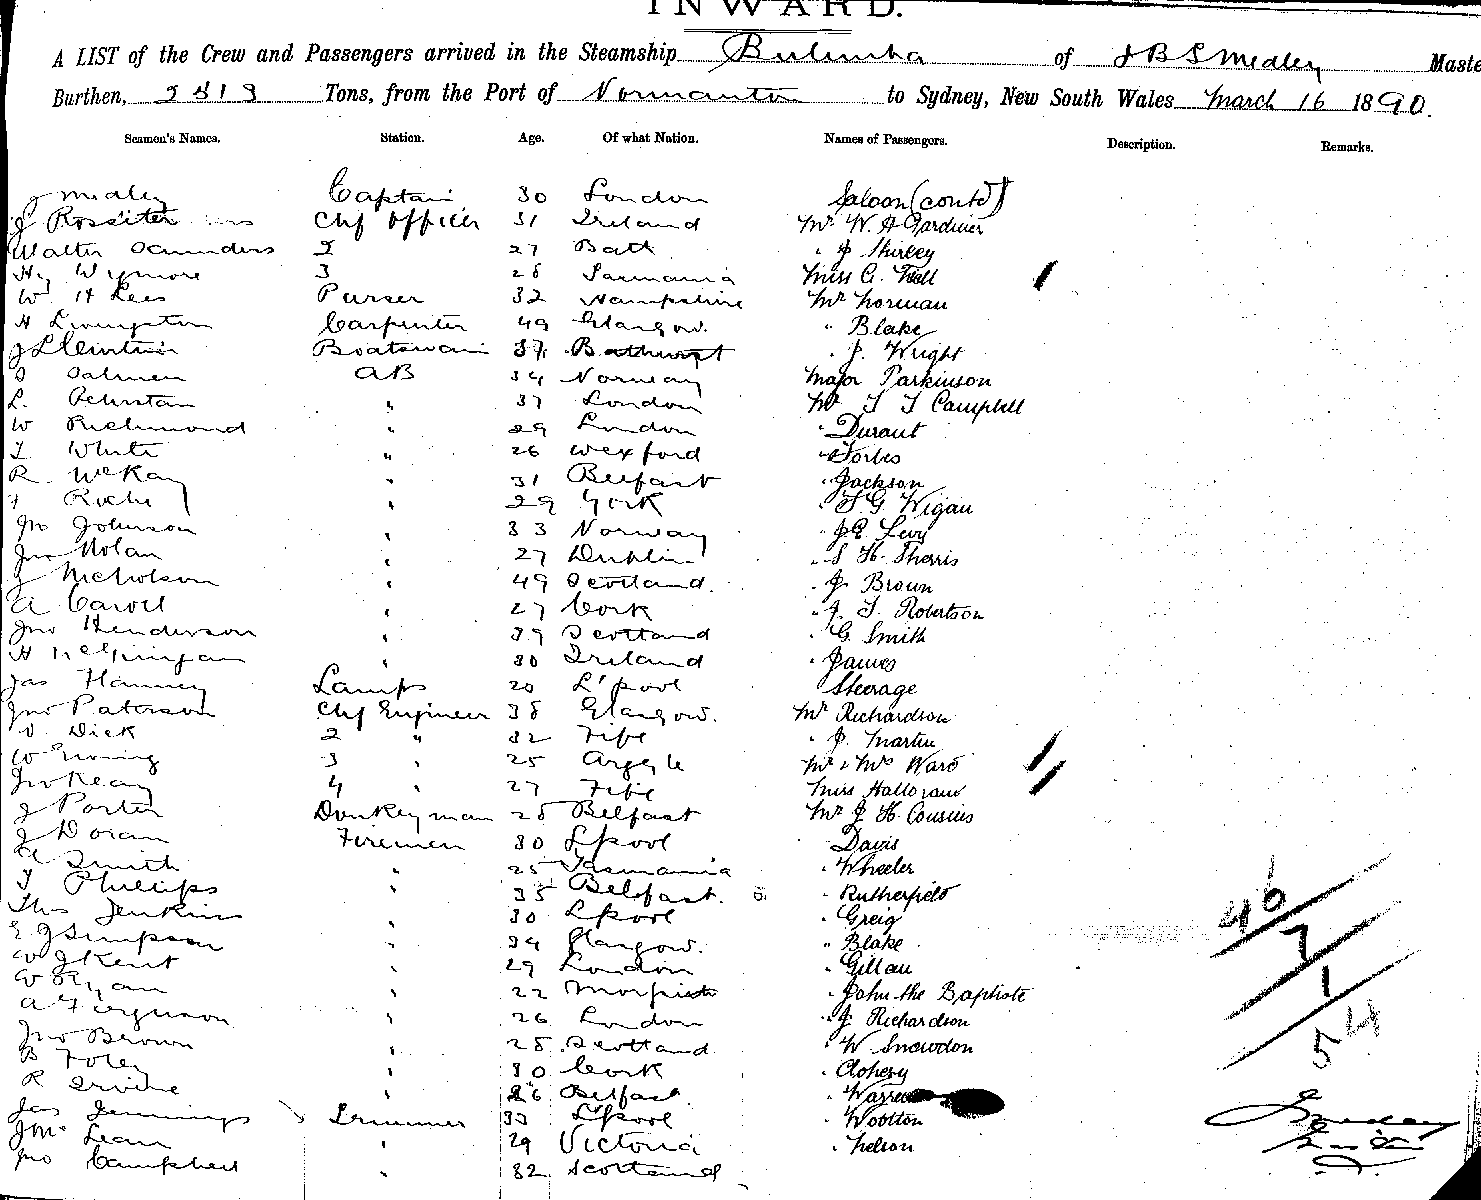 INWARD.
A LIST of the Crew and Passengers arrived in the Steamship Bulimba of J B S Medley Maste
Burthen, 2513 Tons, from the Port of Normanton to Sydney, New South Wales March 16 1890.
Seamen's Names. Station. Age. Of what Nation. Names of Passengers. Description. Remarks.
J Medley Captain 30 London Saloon (contd)
J Rossiter Chf Officer 31 Ireland Mr W. A Gardiner
Walter Saunders 2 27 Bath " J Shirley
Hy Wymore 3 28 Tasmania Miss C. Fell
W. H Lees Purser 32 Hampshire Mr Norman
H Livingston Carpenter 49 Glasgow. " Blake
J Boatswain 37 Bathurst " J. Wright
Salmen AB 34 Norway Major Parkinson
L. 37 London Mr T T Campbell
W Richmond " 29 London " Durant
T White " 26 Wexford " Forbes
R McKay " 31 Belfast " Jackson
Roche " 29 York " T G Wigan
Jno Johnson " 33 Norway " J E Levy
Jno Nolan " 27 Dublin " S H. Sherris
J Nicholson " 49 Scotland. " J Brown
A Caroll " 27 Cork " J. T. Robertson
Jno Henderson " 39 Scotland " G. Smith
H " 30 Ireland " James
Jas Hanney Lamps 20 L'pool Steerage
Jno Paterson Chf Engineer 38 Glasgow. Mr Richardson
D. Dick 2 " 32 Fife " J. Martin
W Ewing 3 " 25 Argyle Mr & Mrs Ward
Jno Keay 4 " 27 Fife Miss Halloran
J Porter Donkeyman 28 Belfast Mr J H Cousins
J Doran Firemen 30 Lpool " Davis
A Smith " 25 Tasmania " Wheeler
T Phillips " 35 Belfast. " Rutherfield
Thos Jenkins " 30 Lpool " Greig
E J Simpson " 34 Glasgow. " Blake
W J Kent " 29 London " Gillan
W Ryan " 22 Morpeth " John the Baptiste
A Ferguson " 26 London " J Richardson
Jno Brown " 28 Scotland " W Snowdon
B Foley " 30 Cork " Clohery
R Irvine " 26 Belfast. " Warren
Jas Jennings Trimmer 33 L'pool " Wootton
J Mc Lean " 29 Victoria " Nelson
Jno Campbell " 32 Scotland
46
7
1
54
J Medley